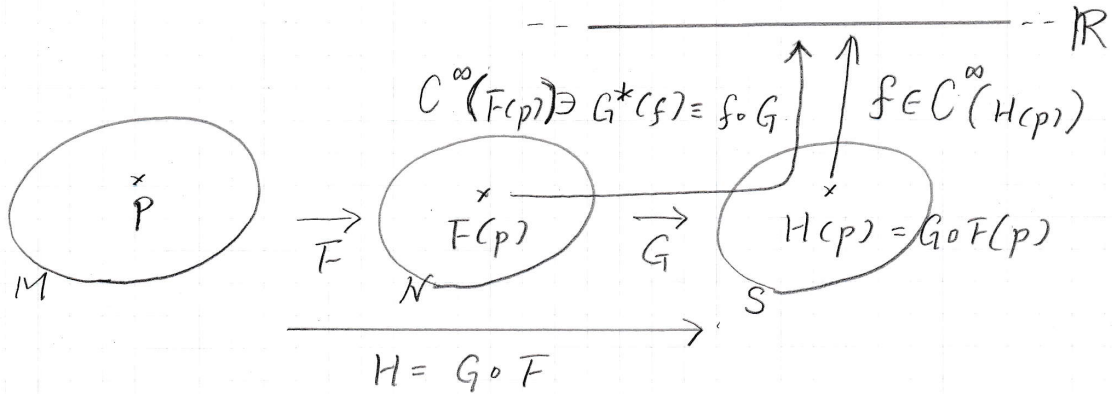 -- -- ℝ
C^∞(F(p)) ∋ G*(f) ≡ f∘G
f ∈ C^∞(H(p))
×
P
M
F
×
F(p)
N
G
×
H(p) = G∘F(p)
S
H = G∘F